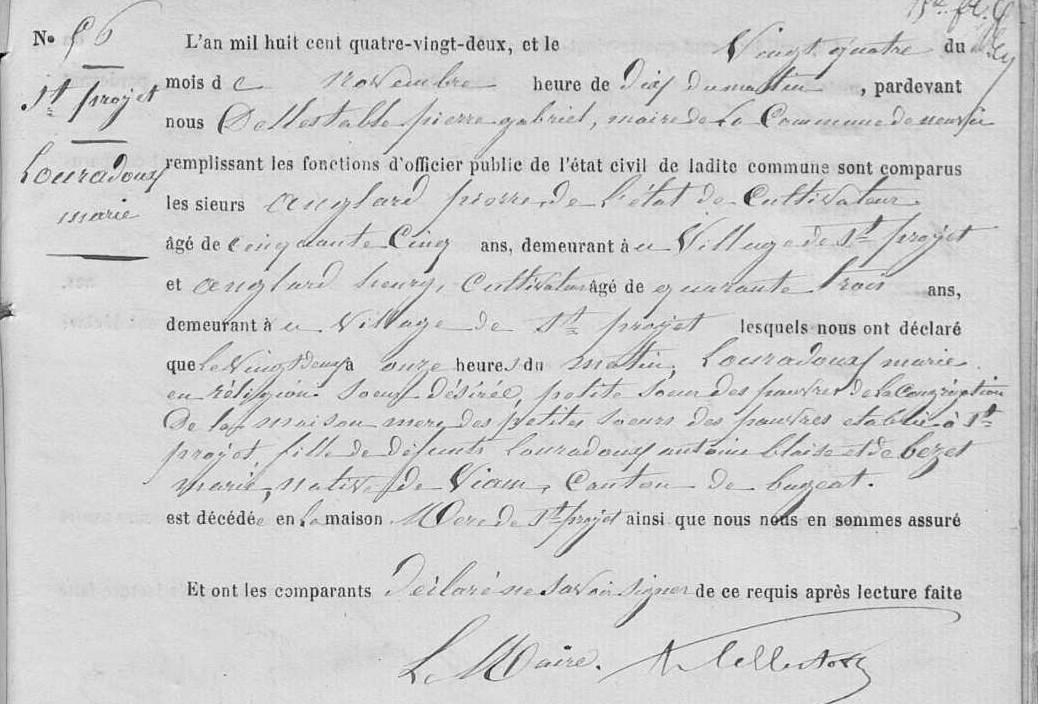 No 56
St projet
Louradoux
marie
L'an mil huit cent quatre-vingt-deux, et le Vingt quatre du
mois de novembre heure de dix du matin, pardevant
nous Dellestable pierre gabriel, maire de La Commune de neuvic
remplissant les fonctions d'officier public de l'état civil de ladite commune sont comparus
les sieurs anglard pierre, de l'état de Cultivateur
âgé de Cinquante Cinq ans, demeurant à u Village de St projet
et anglard henry, Cultivateur âgé de quarante trois ans,
demeurant à u Village de St projet lesquels nous ont déclaré
que le Vingt deux à onze heures du matin, Louradoux marie
en réligion soeur désirée, petite soeur des pauvres de La Congrégation
De la maison mere des petites soeurs des pauvres etablie à St
projet, fille de défunts Louradoux antoine blaise et de bezet
marie, native de Viam, Canton de bugeat.
est décédée en La maison Mere de St projet ainsi que nous nous en sommes assuré
Et ont les comparants déclaré ne savoir signer de ce requis après lecture faite
Le Maire.